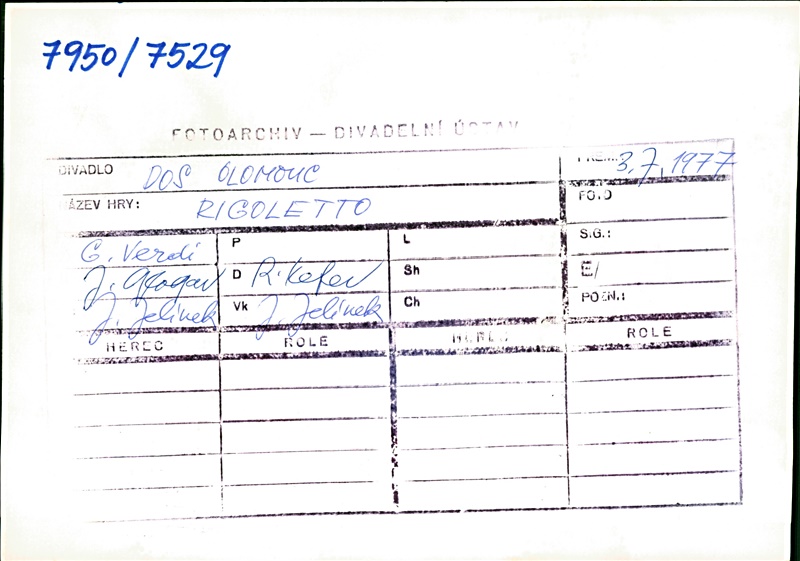 7950/7529
FOTOARCHIV — DIVADELNÍ ÚSTAV
DIVADLO DOS OLOMOUC 3.7.1977
NÁZEV HRY: RIGOLETTO FOTO
G. Verdi P L S.G.:
J. D Sh E/
J. Jelínek Vk J. Jelínek Ch POZN.:
HEREC ROLE HEREC ROLE